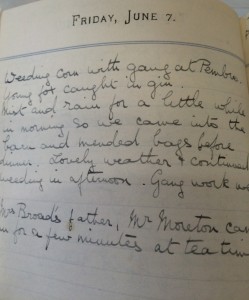 FRIDAY, JUNE 7.
Weeding corn with gang at Pembro.
Young fox caught in gin.
Mist and rain for a little while
in morning so we came into the
barn and mended bags before
dinner. Lovely weather & continued
weeding in afternoon. Gang work
Mrs Broad's father, Mr Moreton
in for a few minutes at tea time